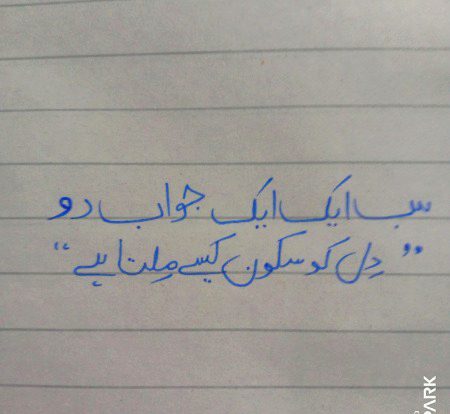 سب ایک ایک جواب دو
” دِل کو سکون کیسے مِلتا ہے “
PARK